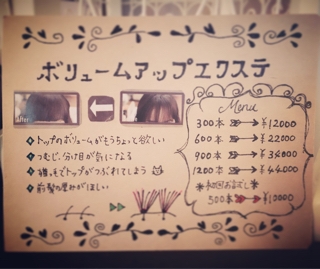 ボリュームアップエクステ
After
トップのボリュームがもうちょっと欲しい
つむじ、分け目が気になる
猫っ毛でトップがつぶれてしまう
前髪の厚みがほしい
Menu
300本 ¥12000
600本 ¥22000
900本 ¥34000
1200本 ¥44000
※初回お試し※
500本 ¥10000